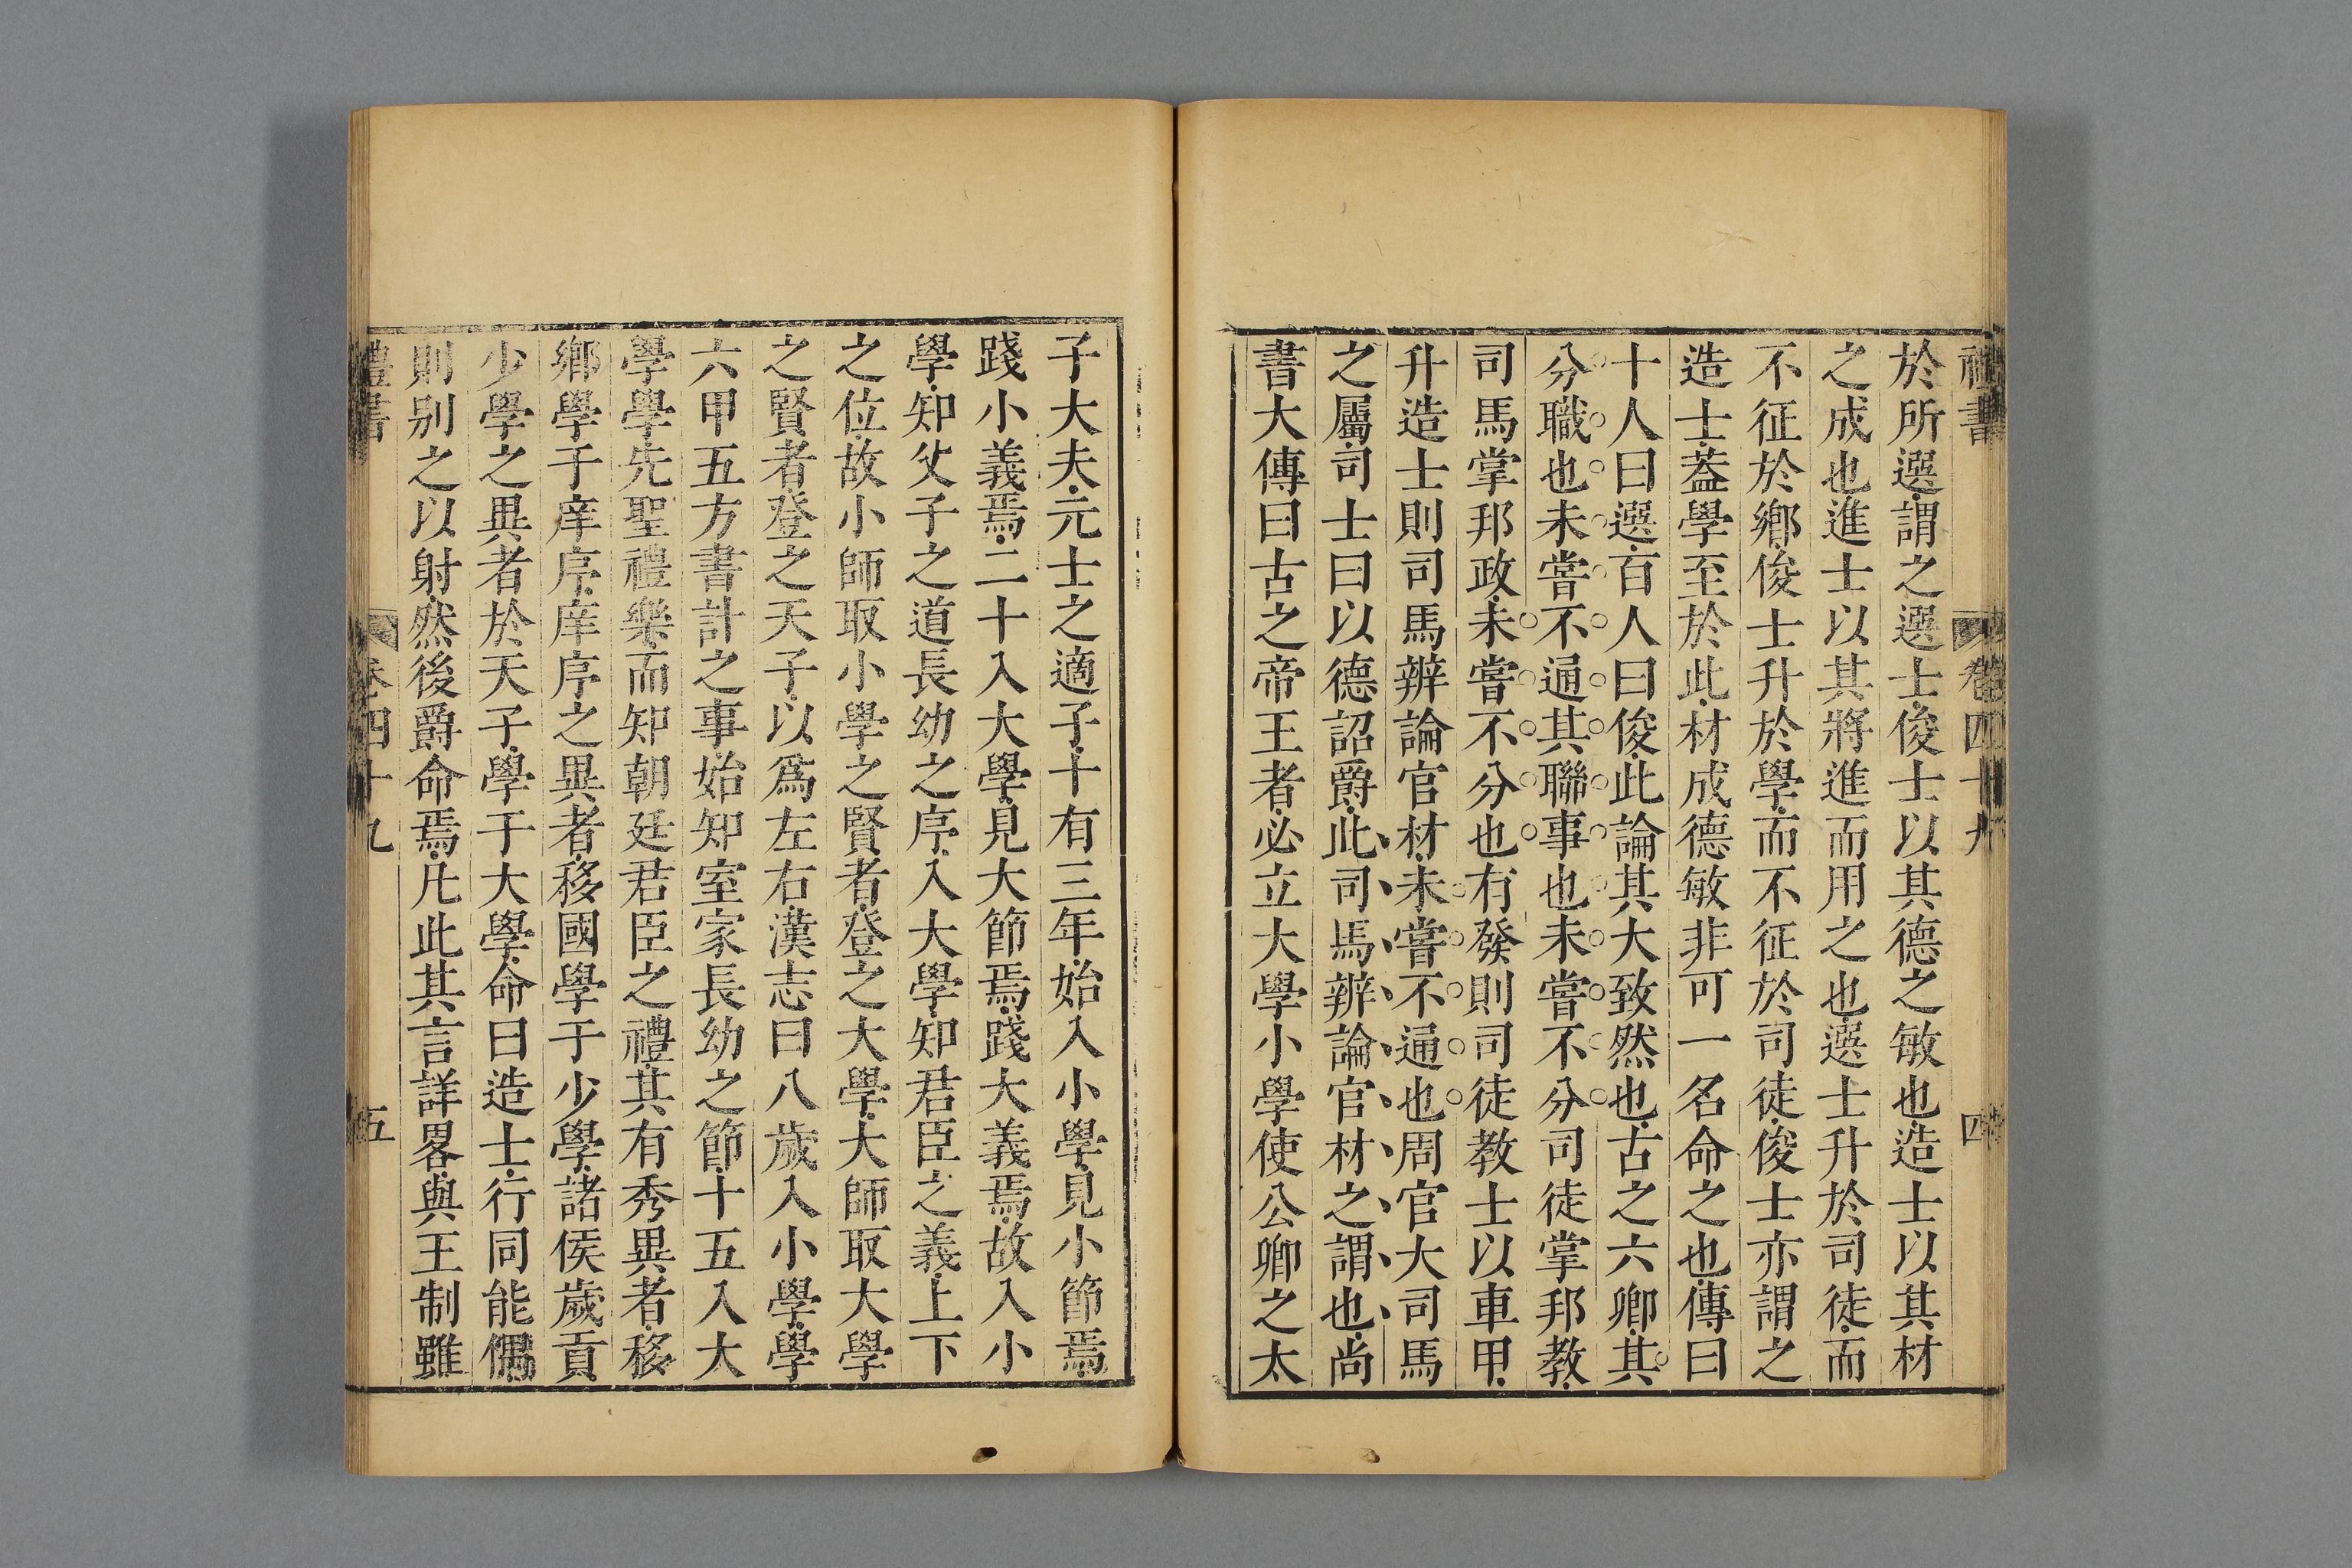 禮書 卷四十九 四
於所選謂之選士俊士以其德之敏也造士以其材
之成也進士以其將進而用之也選士升於司徒而
不征於鄉俊士升於學而不征於司徒俊士亦謂之
造士葢學至於此材成德敏非可一名命之也傳曰
十人曰選百人曰俊此論其大致然也古之六卿其
分職也未嘗不通其聯事也未嘗不分司徒掌邦教
司馬掌邦政未嘗不分也有發則司徒教士以車甲
升造士則司馬辨論官材未嘗不通也周官大司馬
之屬司士曰以德詔爵此司馬辨論官材之謂也尚
書大傳曰古之帝王者必立大學小學使公卿之太
子大夫元士之適子十有三年始入小學見小節焉
踐小義焉二十入大學見大節焉踐大義焉故入小
學知父子之道長幼之序入大學知君臣之義上下
之位故小師取小學之賢者登之大學大師取大學
之賢者登之天子以爲左右漢志曰八歲入小學學
六甲五方書計之事始知室家長幼之節十五入大
學學先聖禮樂而知朝廷君臣之禮其有秀異者移
鄉學于庠序庠序之異者移國學于少學諸侯歲貢
少學之異者於天子學于大學命曰造士行同能偶
則别之以射然後爵命焉凡此其言詳畧與王制雖
禮書 卷四十九 五